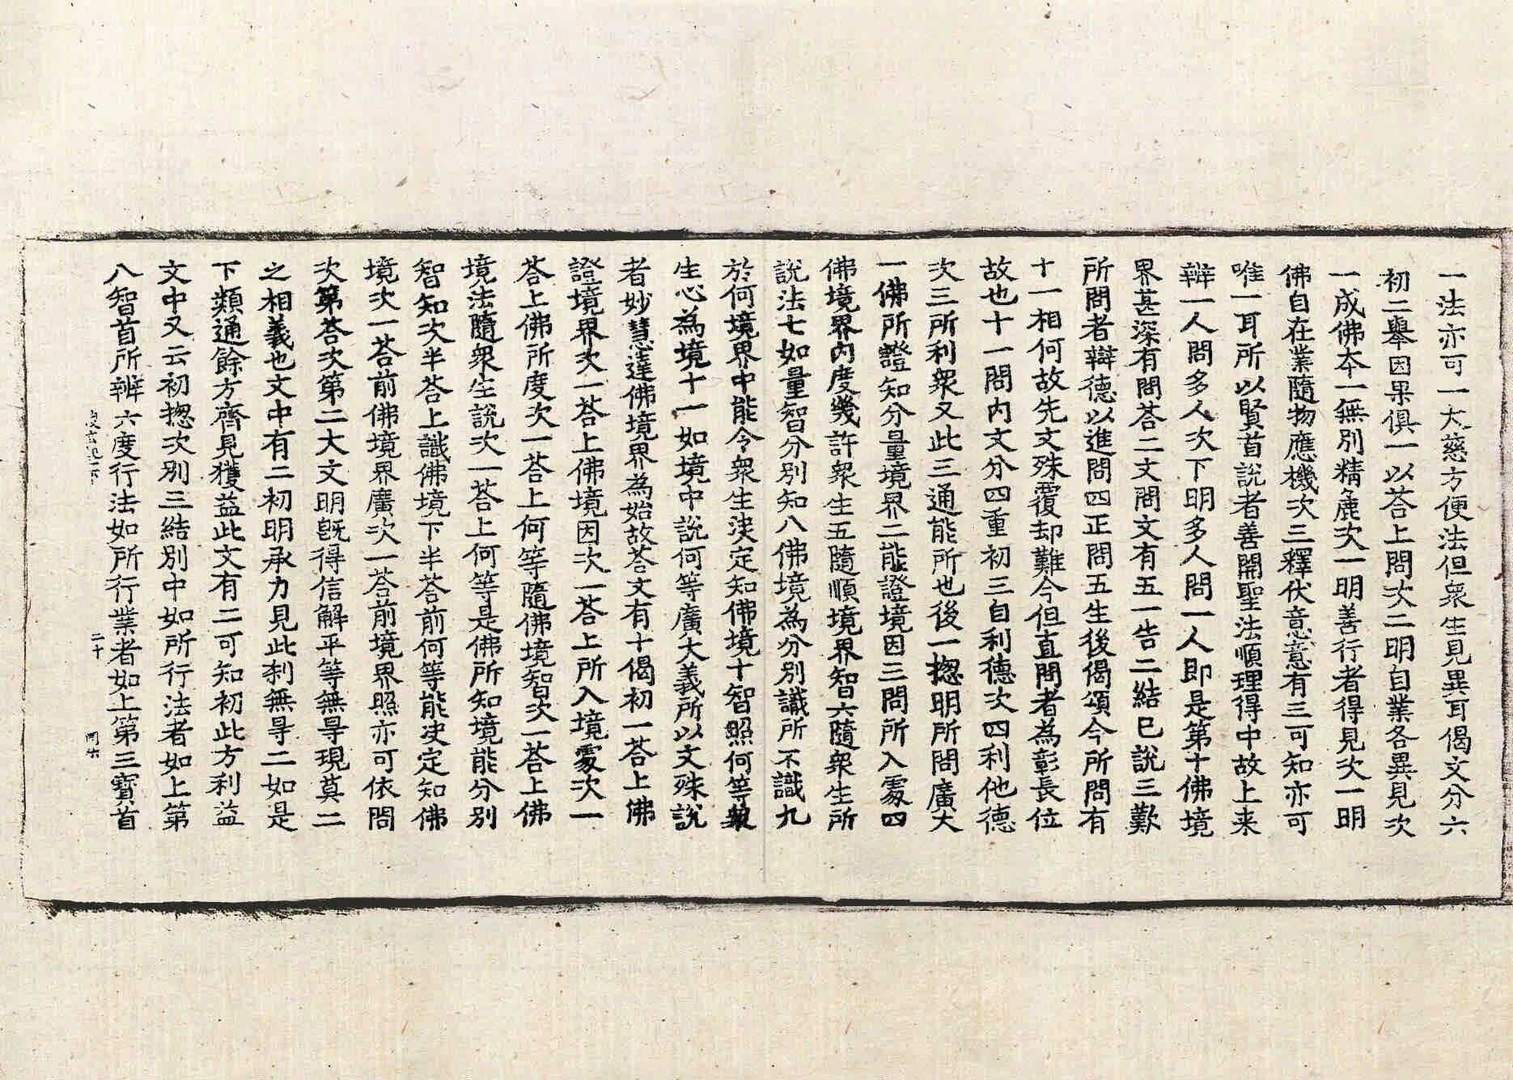 一法亦可一大慈方便法但衆生見異耳偈文分六
初二舉因果俱一以荅上問次二明自業各異見次
一成佛夲一無別精麁次一明善行者得見次一明
佛自在業隨物應機次三釋伏意意有三可知亦可
唯一耳所以賢首說者善開聖法順理得中故上来
辯一人問多人次下明多人問一人即是第十佛境
界甚深有問荅二文問文有五一告二結已說三歎
所問者辯德以進問四正問五生後偈頌今所問有
十一相何故先文殊覆却難今但直問者為彰長位
故也十一問内文分四重初三自利德次四利他德
次三所利衆又此三通能所也後一揔明所問廣大
一佛所證知分量境界二能證境因三問所入䖏四
佛境界内度幾許衆生五隨順境界智六隨衆生所
說法七如量智分別知八佛境為分別識所不識九
於何境界中能令衆生决定知佛境十智照何等衆
生心為境十一如境中說何等廣大義所以文殊說
者妙慧達佛境界為始故荅文有十偈初一荅上佛
證境界次一荅上佛境因次一荅上所入境䖏次一
荅上佛所度次一荅上何等隨佛境智次一荅上佛
境法隨衆生說次一荅上何等是佛所知境能分別
智知次半荅上識佛境下半荅前何等能决定知佛
境次一荅前佛境界廣次一荅前境界照亦可依問
次第荅次第二大文明旣得信解平等無㝵現莫二
之相義也文中有二初明承力見此刹無㝵二如是
下類通餘方齊見獲益此文有二可知初此方利益
文中又云初揔次別三結別中如所行法者如上第
八智首所辨六度行法如所行業者如上第三寶首
二十